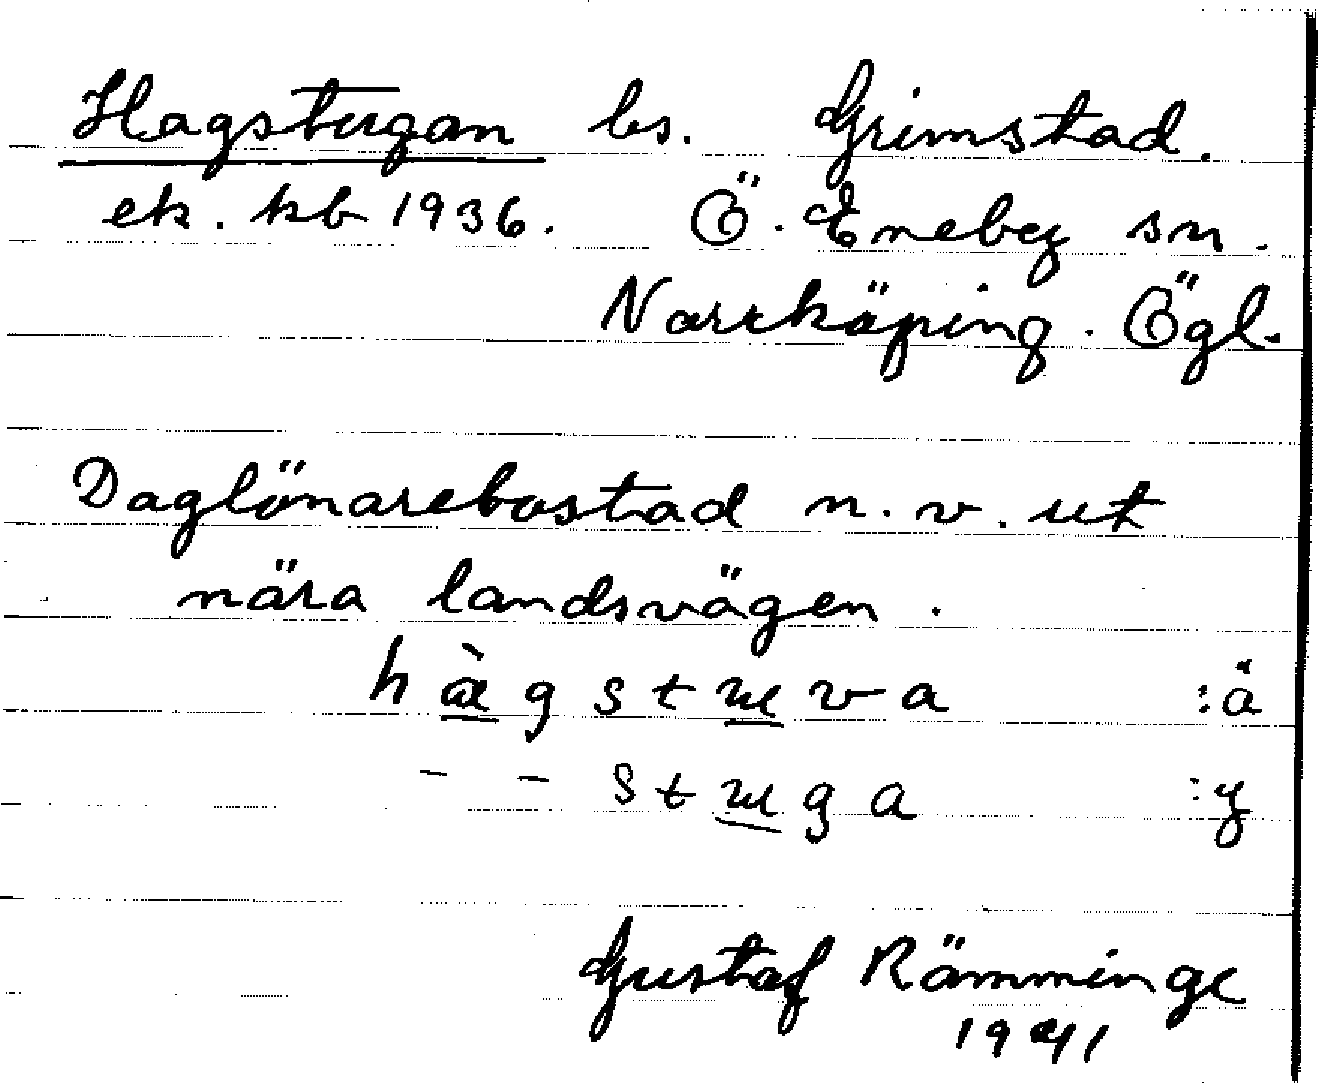 Hagstugan bs. Grimstad.
ek. kb 1936. Ö. Eneby sn.
Norrköping. Ögl.
Daglönarebostad n. v. ut
nära landsvägen.
hàgstuva :å
- - stuga :y
Gustaf Rämminge
1941